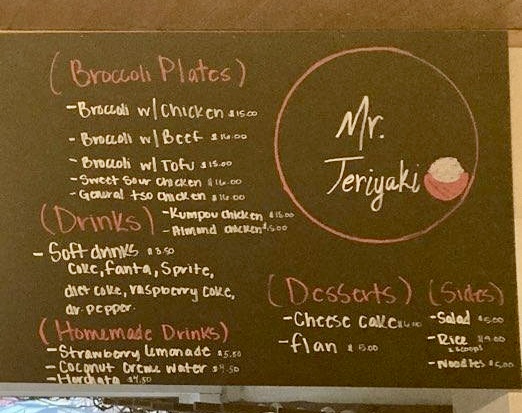 (Broccoli Plates)
- Broccoli w/ Chicken $15.00
- Broccoli w/ Beef $16.00
- Broccoli w/ Tofu $15.00
- Sweet Sour Chicken $16.00
- General tso Chicken $16.00
- Kumpou chicken
- Almond chicken
Mr.
Jeriyaki
(Drinks)
- Soft drinks $3.50
Coke, fanta, Sprite,
diet coke, raspberry coke,
dr. pepper.
(Homemade Drinks)
- Strawberry lemonade $5.50
- Coconut Creme water $4.50
- Horchata $4.50
(Desserts)
- Cheese cake
- flan $5.00
(Sides)
- Salad $5.00
- Rice
2 scoops
- Noodles $5.00